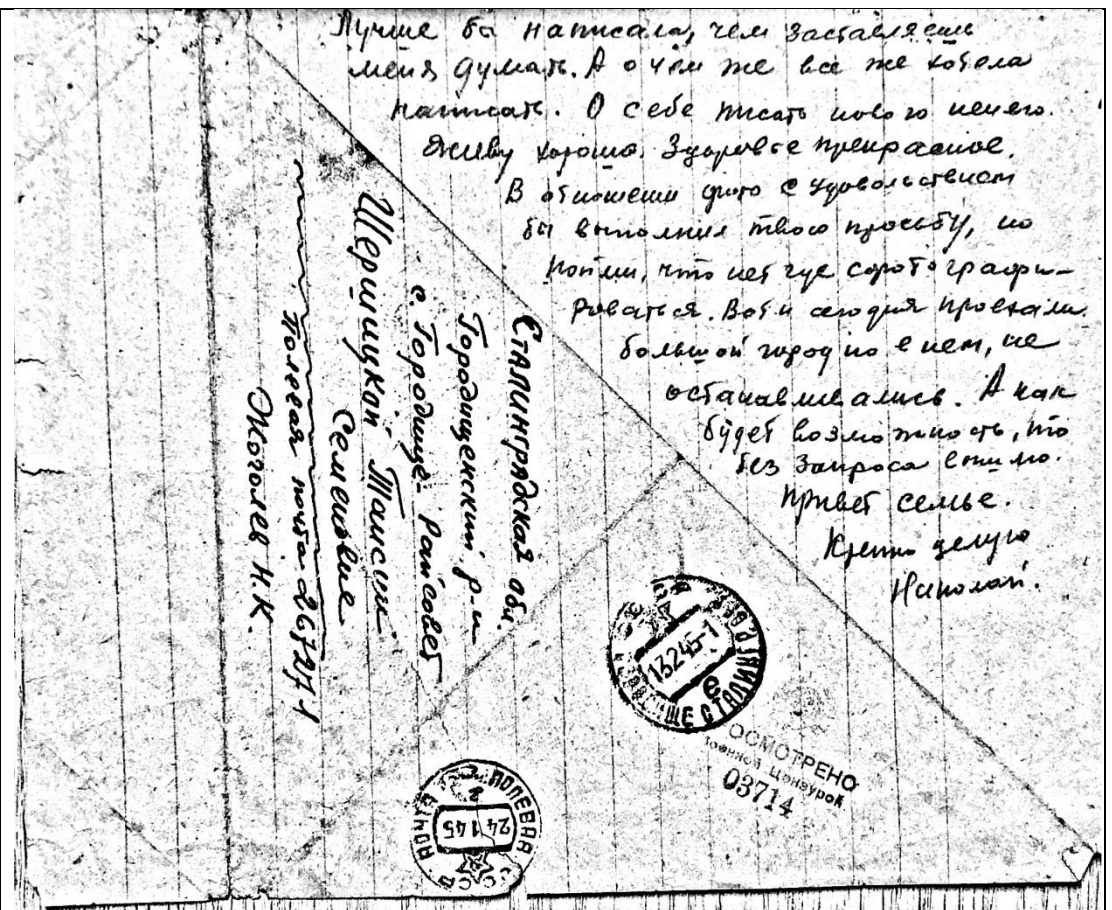 Лучше бы написала, чем заставляешь
меня думать. А о чём же все же хотела
написать. О себе писать нового нечего.
Живу хорошо. Здоровье прекрасное.
В отношении фото с удовольствием
бы выполнил твою просьбу, но
пойми, что нет где сфотографи-
роваться. Вот и сегодня проехали
большой город но в нем, не
останавливались. А как
будет возможность, то
без запроса вышлю.
Привет семье.
Крепко целую
Николай.
Сталинградская обл.
Городищенский р-н
с. Городище- Райсовет
Шершицкой Таисии
Семеновне
Полевая почта
Жоголев Н.К.
13245-1
е
ГОРОДИЩЕ СТАЛИНГР. ОБЛ.
ОСМОТРЕНО
Военной Цензурой
03714
ПОЛЕВАЯ ПОЧТА
24 1 45
СССР